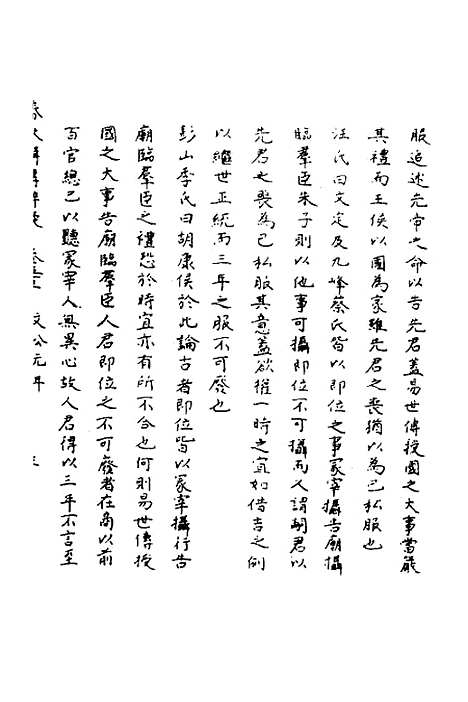 服追述先帝之命以告先君蓋易世傳授國之大事當嚴
其禮而王侯以國為家雖先君之喪猶以為己私服也
汪氏曰文定及九峰蔡氏皆以即位之事冢宰攝告廟攝
臨羣臣朱子則以他事可攝即位不可攝而又謂嗣君以
先君之喪為己私服其意蓋欲權一時之宜如借吉之例
以繼世正統而三年之服不可廢也
彭山季氏曰胡康侯於此論古者即位皆以冢宰攝行告
廟臨羣臣之禮恐於時宜亦有所不合也何則易世傳授
國之大事告廟臨羣臣人君即位之不可廢者在商以前
百官總己以聽冢宰人無異心故人君得以三年不言至
文公元年